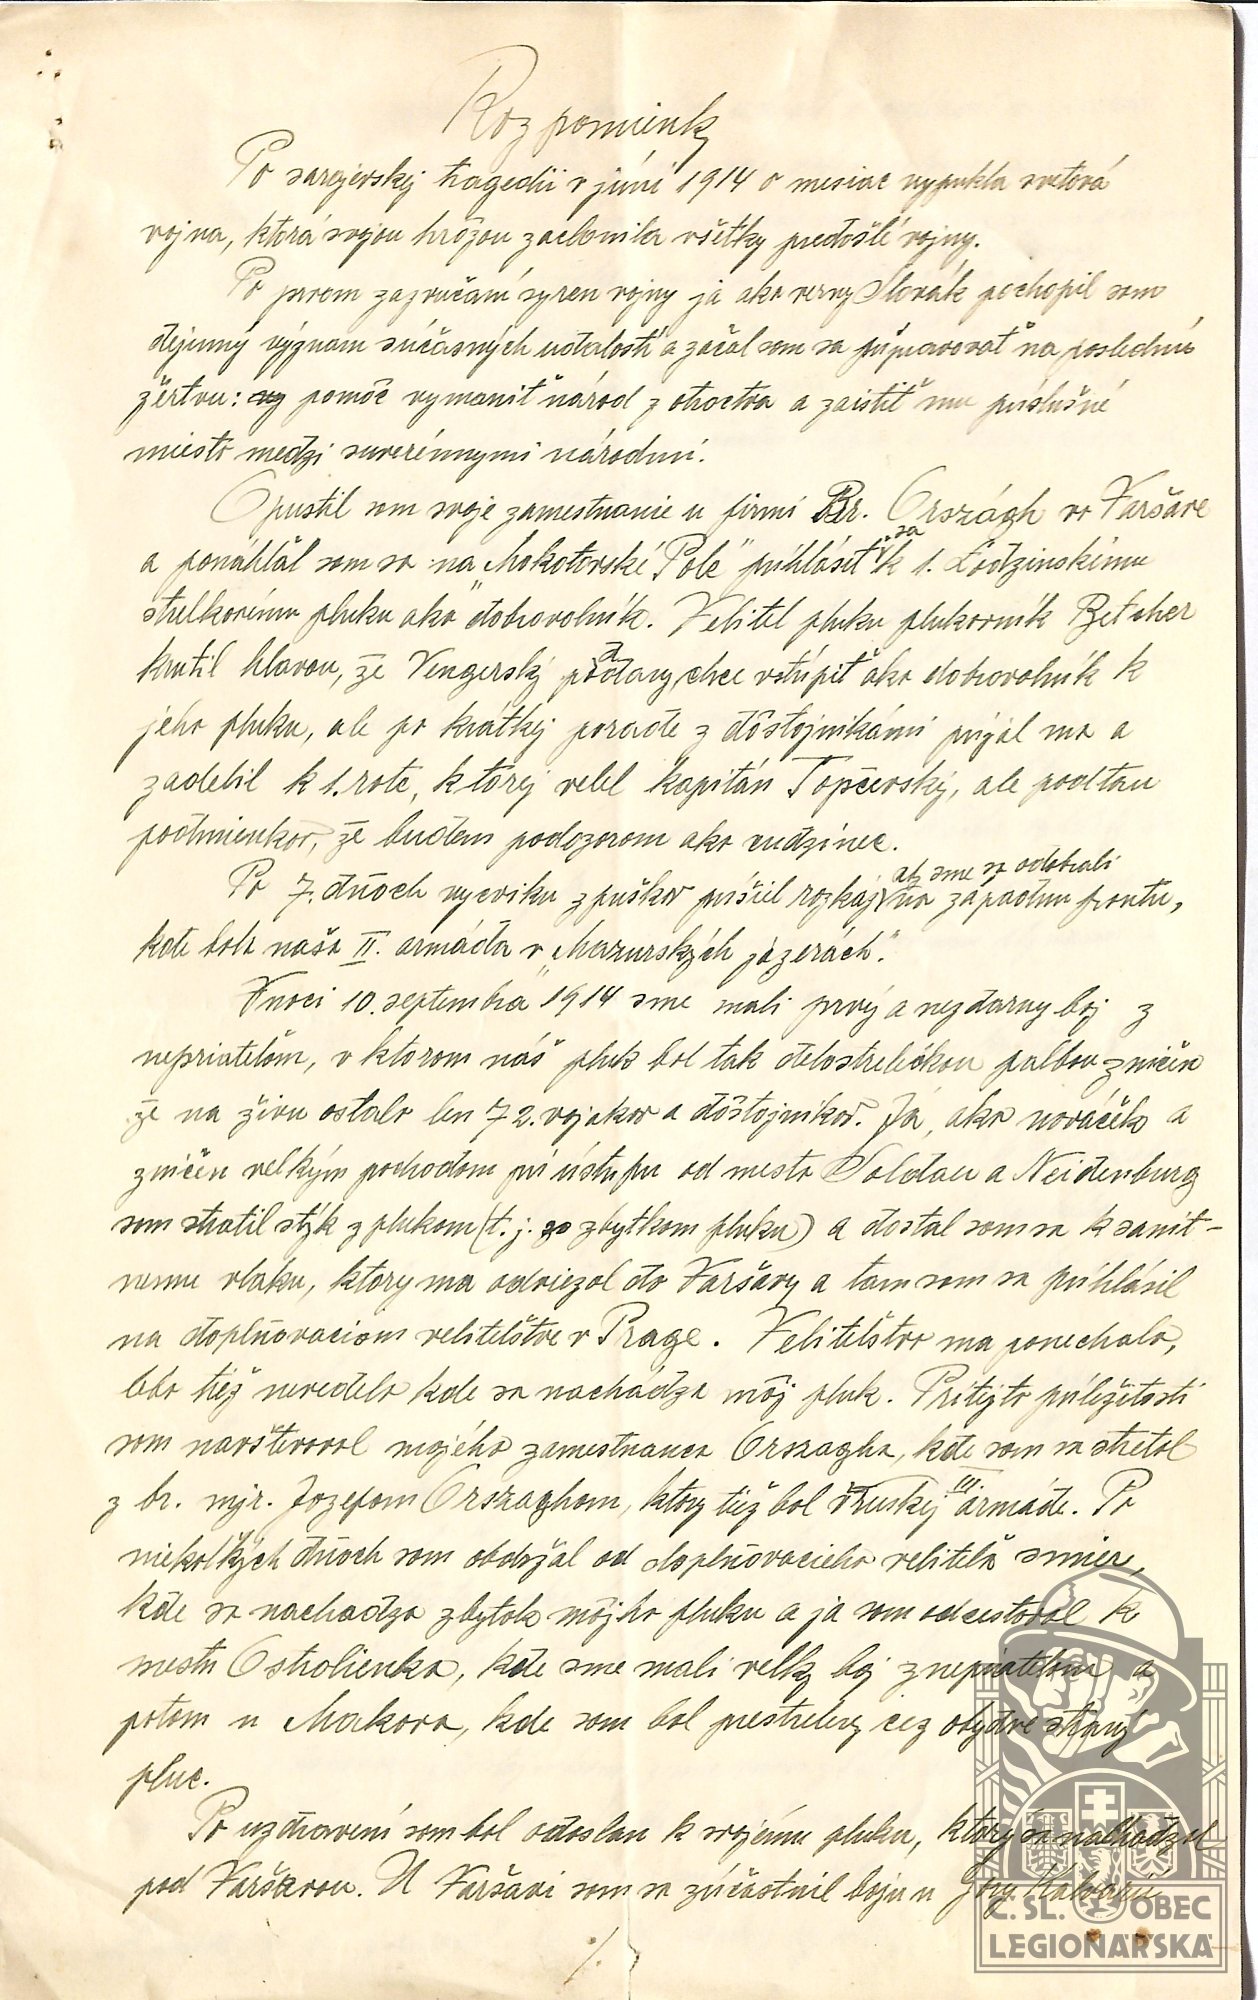 Rozpomienky
Po sarajevskej tragedii v júni 1914 o mesiac vypukla svetová
vojna, ktorá svojou hrôzou zaclonila všetky predošlé vojny.
Po prvom zazvučaní syren vojny ja ako verny Slovák pochopil som
dejinný význam súčasných udalostí a začal som sa pripravovať na poslednú
žertvu: pomôcť vymaniť národ z otroctva a zaistiť mu príslušné
miesto medzi suverénnymi národmi.
Opustil som svoje zamestnanie u firmi Br. Országh vo Varšave
a ponáhlal som sa na „Mokotovské Pole" prihlásiť sa k 1. Lodzinskému
strelkovému pluku ako dobrovolník. Velitel pluku plukovník Betcher
krutil hlavou, že Vengerský poddany chce vstúpiť ako dobrovolník k
jeho pluku, ale po krátkej porade z dôstojnikámi prijal ma a
zadelil k 1. rote, ktorej velel kapitán Topčevský, ale pod tou
podmienkov, že budem pod dozorom ako cudzinec.
Po 7. dňoch vycviku z puškov prišiel rozkaz aby sme sa odobrali
na západnu frontu,
kde bola naša II. armáda v „Mazurských jazerách".
V noci 10. septembra 1914 sme mali prvý a nezdarny boj z
nepriatelom, v ktorom náš pluk bol tak delostreleckou palbou zničen
že na živu ostalo len 72. vojakov a dôstojnikov. Já, ako nováček a
zničen velkým pochodom pri ústupu od mesta Soldau a Neidenburg
som stratil styk z plukom (t. j. zo zbytkom pluku) a dostal som sa k sanit-
nemu vlaku, ktory ma odviezol do Varšavy a tam som sa prihlásil
na doplňovaciom velitelstve v Prage. Velitelstvo ma ponechalo,
lebo tiež nevedelo kde sa nachádza môj pluk. Pri tejto príležitosti
som navštevoval mojého zamestnanca Orszagha, kde som sa stretol
z br. mjr. Jozefom Orszaghom, ktory tiež bol v ruskej III. armáde. Po
niekolkých dňoch som obdržal od doplňovacieho velitela smier,
kde sa nachadza zbytok môjho pluku a ja som odcestoval k
mestu Ostrolienka, kde sme mali velky boj z nepriatelom a
potom u Makova, kde som bol prestreleny cez obydve strany
pluc.
Po uzdravení som bol odoslan k svojému pluku, ktory sa nachadzal
pod Varšavou. U Varšavi som sa zúčastnil boju u Gory Kalvarii
./.
Č. SL. OBEC
LEGIONÁŘSKÁ